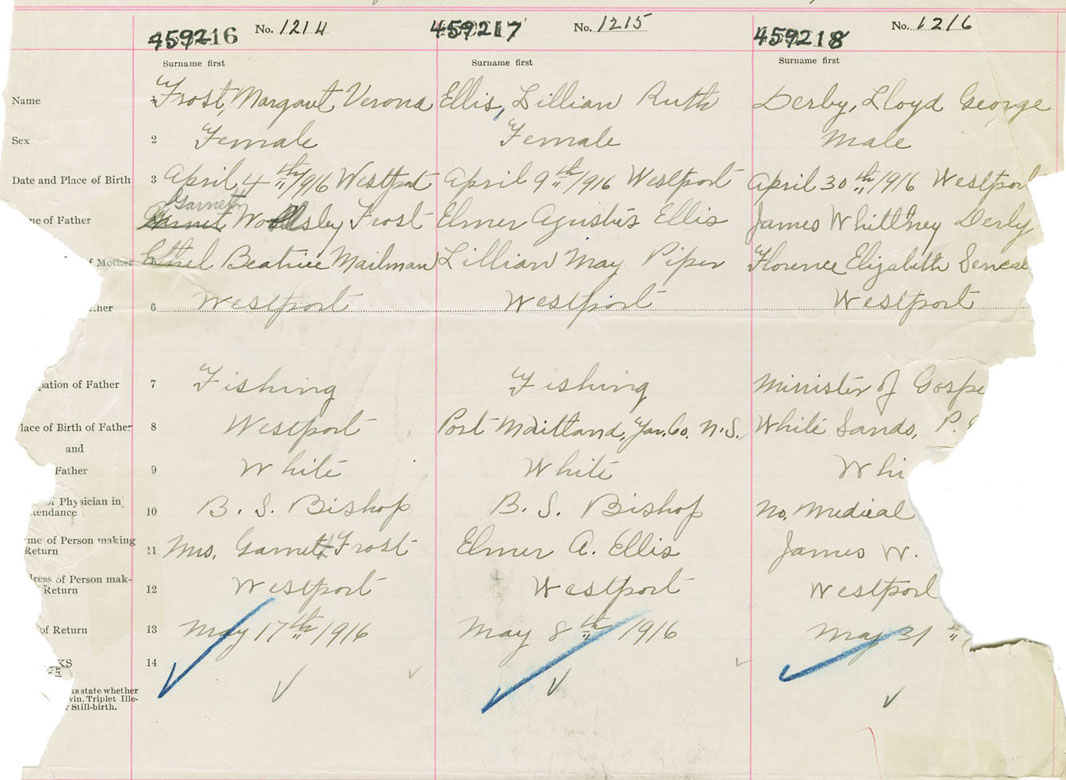 459216 No. 1214 459217 No. 1215 459218 No. 1216
Surname first Surname first Surname first
Name 1 Frost, Margaut Verona Ellis, Lillian Ruth Derby, Lloyd George
Sex 2 Female Female Male
Date and Place of Birth 3 April, 4th 1916 Westport April 9th 1916 Westport April 30th 1916 Westport
Garnett
me of Father Woolsley Frost Elmer Agustus Ellis James Whittney Derby
of Mother Ethel Beatrice Mailman Lillian May Piper Florence Elizabeth
ther 6 Westport Westport Westport
pation of Father 7 Fishing Fishing Minister of Gospe
lace of Birth of Father 8 Westport Port Maitland, Yar. Co. N.S. White Sands, P.
and
Father 9 White White Whi
of Physician in
tendance 10 B. S. Bishop B. S. Bishop No Medical
me of Person making
Return 11 Mrs. Garnett Frost Elmer A. Ellis James W.
dress of Person mak-
Return 12 Westport Westport Westport
of Return 13 May 17th 1916 May 8th 1916 May 31
KS 14
ks state whether
win. Triplet Ille-
r Still-birth.